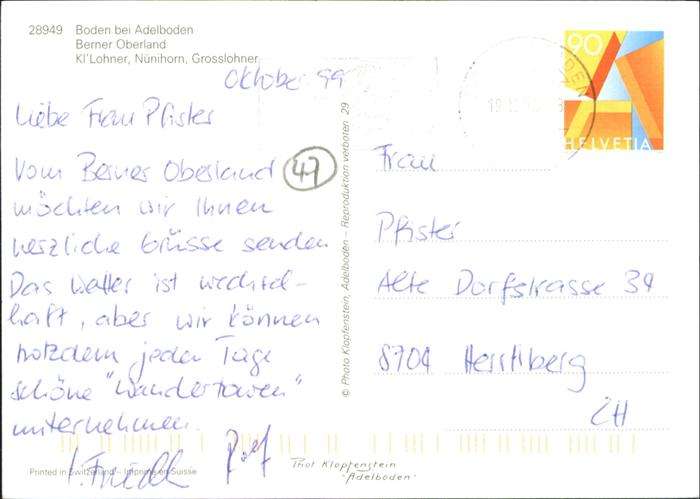 28949 Boden bei Adelboden
Berner Oberland
Kl'Lohner, Nünihorn, Grosslohner
Oktober 99
Liebe Frau Pfister
Vom Berner Oberland
47
möchten wir Ihnen
herzliche Grüsse senden
Das Wetter ist wechsel-
haft, aber wir können
trotzdem jeden Tage
schöne "Wandertouren"
unternehmen.
Printed in Switzerland – Imprimé en Suisse
© Photo Klopfenstein, Adelboden – Reproduktion verboten 29
90
A
HELVETIA
Frau
Pfister
Alte Dorfstrasse 34
8704 Herrliberg
CH
Phot Klopfenstein
"Adelboden"